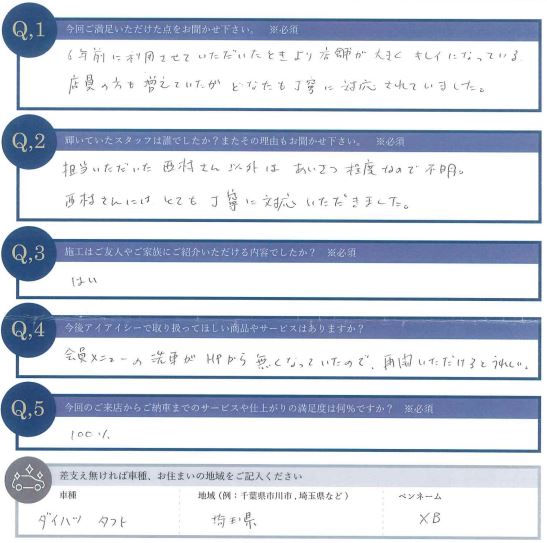 Q,1 今回ご満足いただけた点をお聞かせ下さい。 ※必須
6年前に利用させていただいたときより店舗が大きくキレイになっている
店員の方も増えていたがどなたも丁寧に対応されていました。
Q,2 輝いていたスタッフは誰でしたか？またその理由もお聞かせ下さい。 ※必須
担当いただいた西村さん以外はあいさつ程度なので不明。
西村さんにはとても丁寧に対応いただきました。
Q,3 施工はご友人やご家族にご紹介いただける内容でしたか？ ※必須
はい
Q,4 今後アイアイシーで取り扱ってほしい商品やサービスはありますか？
会員メニューの洗車がHPから無くなっていたので、再開いただけるとうれしい。
Q,5 今回のご来店からご納車までのサービスや仕上がりの満足度は何％ですか？ ※必須
100%
差支え無ければ車種、お住まいの地域をご記入ください
車種 地域（例：千葉県市川市，埼玉県など） ペンネーム
ダイハツ タフト 埼玉県 XB